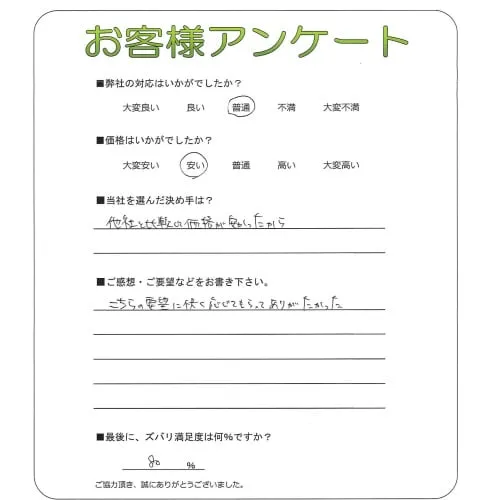 お客様アンケート
■弊社の対応はいかがでしたか？
大変良い 良い 普通 不満 大変不満
■価格はいかがでしたか？
大変安い 安い 普通 高い 大変高い
■当社を選んだ決め手は？
他社と比較して価格が安かったから
■ご感想・ご要望などをお書き下さい。
こちらの要望に快く応じてもらってありがたかった
■最後に、ズバリ満足度は何％ですか？
80 ％
ご協力頂き、誠にありがとうございました。